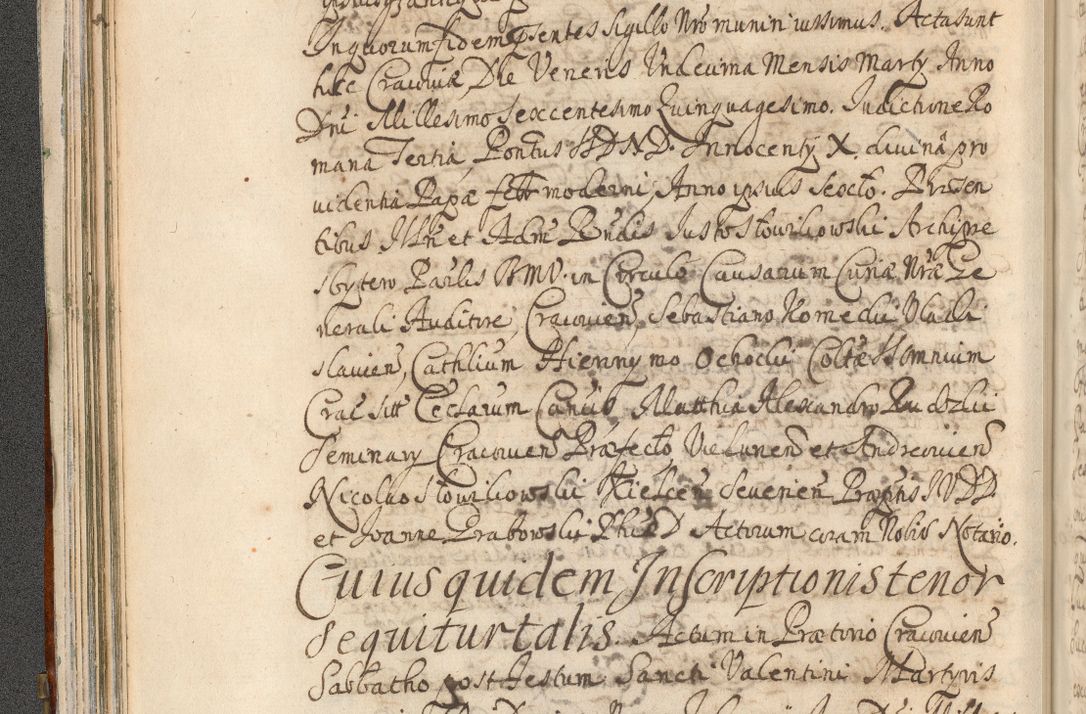 In quorum fidem pntes Sigillo Nro muniri iussimus. Acta sunt
haec Cracoviæ Die Veneris Undecima Mensis Marty Anno
Dni Millesimo Sexcentesimo Quinquagesimo. Indictione Ro
mana Tertia, Pontus SSDND. Innocenty X. divinâ pro
videntia Papæ fel: moderni, Anno ipsius Sexto. Præsen
tibus Illri et Adm Rndis Justo Słowikowski Archipre
sbytero Parlis BMV. in Circulo Causarum Curiæ Nræ Ge
nerali Auditore, Cracovien, Sebastiano Komecki Uladi
slavien, Cathlium Hieronymo Ochocki Coltæ SS. Omnium
Crac Sitt Ecclarum Cancis Matthia Alexandro Rudzki
Seminary Cracovien Præfecto Vielunen et Andreovien
Nicolao Słowikowski Kielcen Severien Præptis JUDD
et Joanne Grabowski Phiæ D Actorum coram Nobis Notario.
Cuius quidem Inscriptionis tenor
sequitur talis. Actum in Prætorio Cracovien
Sabbatho post Festum Sancti Valentini Martyris